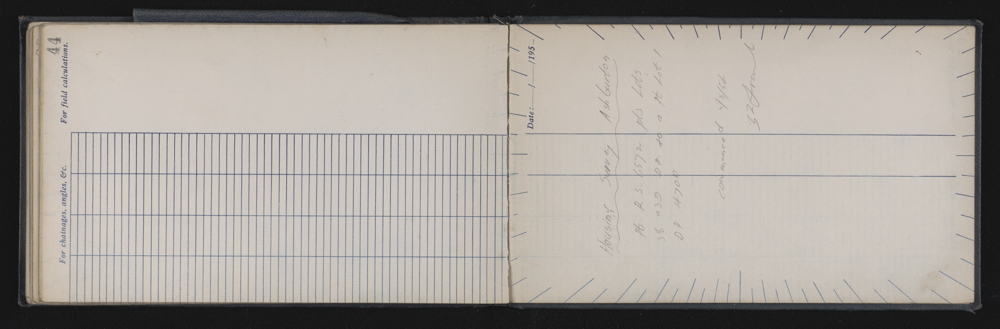 44
For field calculations.
For chainages, angles, &c.
Date: / /195-
Housing Survey Ashburton
Pt R.S. 1572 pts Lots
38 & 39 DP. 40 a Pt Lot 1
DP 4700
commenced